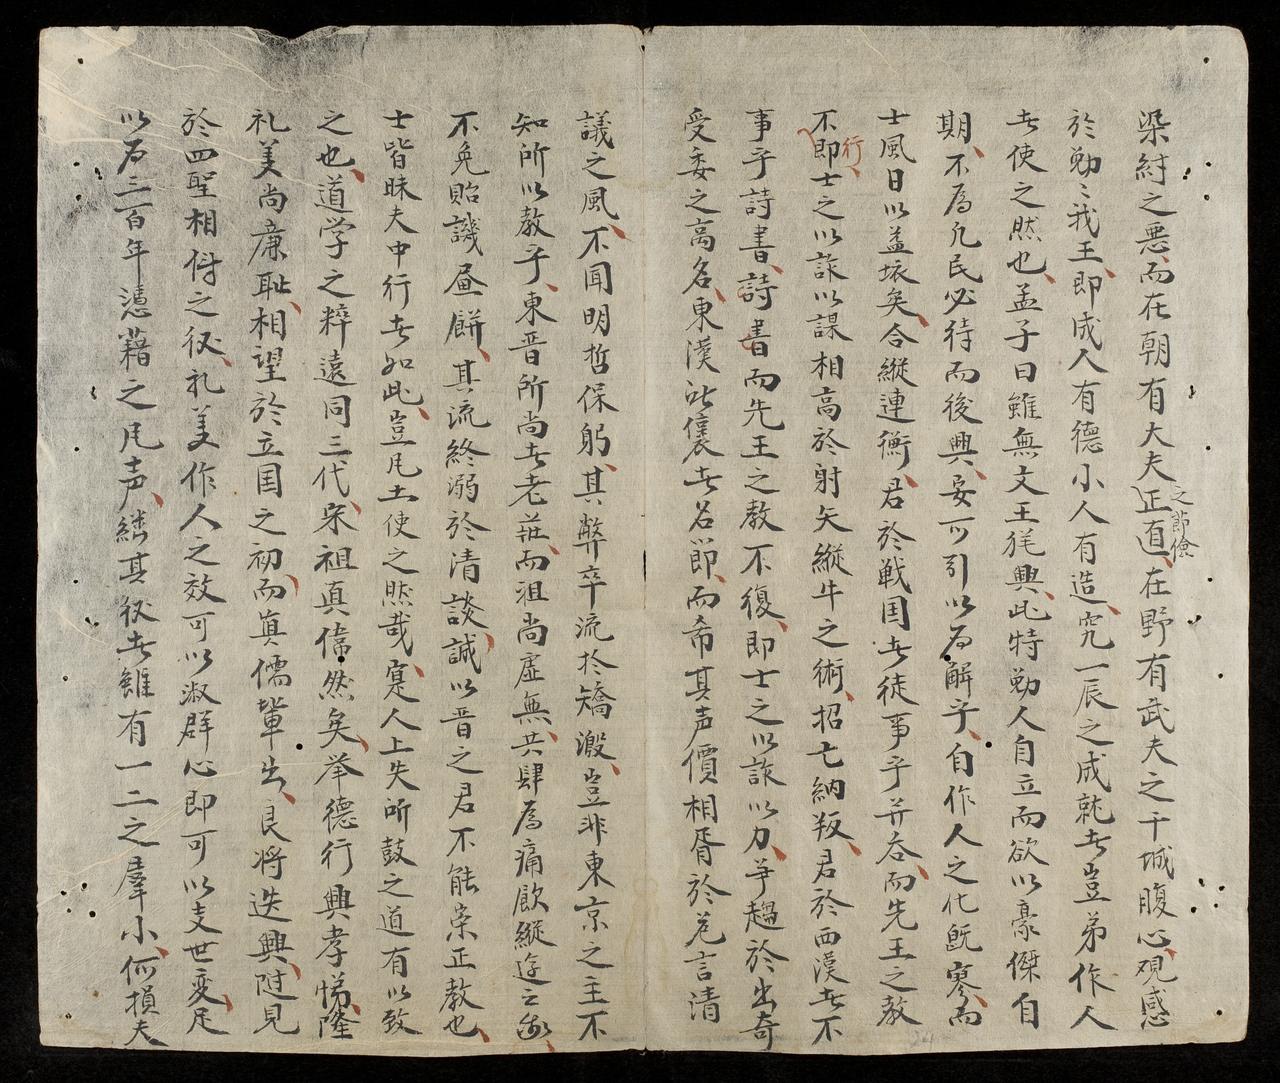 梁紂之悪而在朝有大夫之節儉正直在野有武夫之干城腹心観感
於勤〻我王即成人有德小人有造究一辰之成就者豈弟作人
者使之然也孟子曰雖無文王犹興此特勤人自立而欲以豪傑自
期不為凡民必待而後興妄可引以為解乎自作人之化既寥而
士風日以益壊矣合縱連衡君於戦国者徒事乎并吞而先王之教
不行即士之以詐以謀相高於射矢縱牛之術招亡納叛君於西漢者不
事乎詩書詩書而先王之教不復即士之以詐以力争趨於出奇
受委之高名東漢所儀者名節而希其声價相胥於危言清
議之風不聞明哲保躬其弊卒流於矯激豈非東京之主不
知所以教乎東晋所尚者老莊而祖尚虚無共肆為痛飲縱
不免貽譏昼餅其流終溺於清談誠以晋之君不能崇正教也
士皆昧夫中行者如此豈凡士使之然哉寔人上失所鼓之道有以致
之也道学之粹遠同三代宋祖真儒然矣挙德行興孝悌隆
礼美尚廉耻相望於立国之初而真儒輩出良将迭興則見
於四聖相傳之後礼美作人之效可以淑群心即可以支世変足
以為三百年憑藉之凡声繼其後者雖有一二之群小何損夫